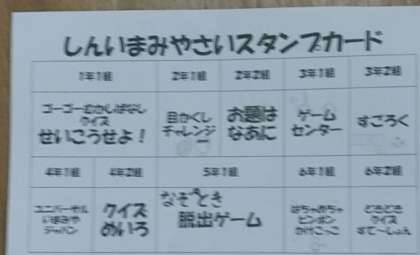 しんいまみやさいスタンプカード
1年1組 2年1組 2年2組 3年1組 3年2組
ゴーゴーむかしばなし
クイズ
せいこうせよ！
目かくし
チャレンジ
ー
お題は
なあに
ゲーム
センター
すごろく
4年1組 4年2組 5年1組 6年1組 6年2組
ユニバーサル
いまみや
ジャパン
クイズ
めいろ
なぞとき
脱出ゲーム
はちゃめちゃ
ピンポン
かけっこ
どきどき
クイズ
すて～しょん